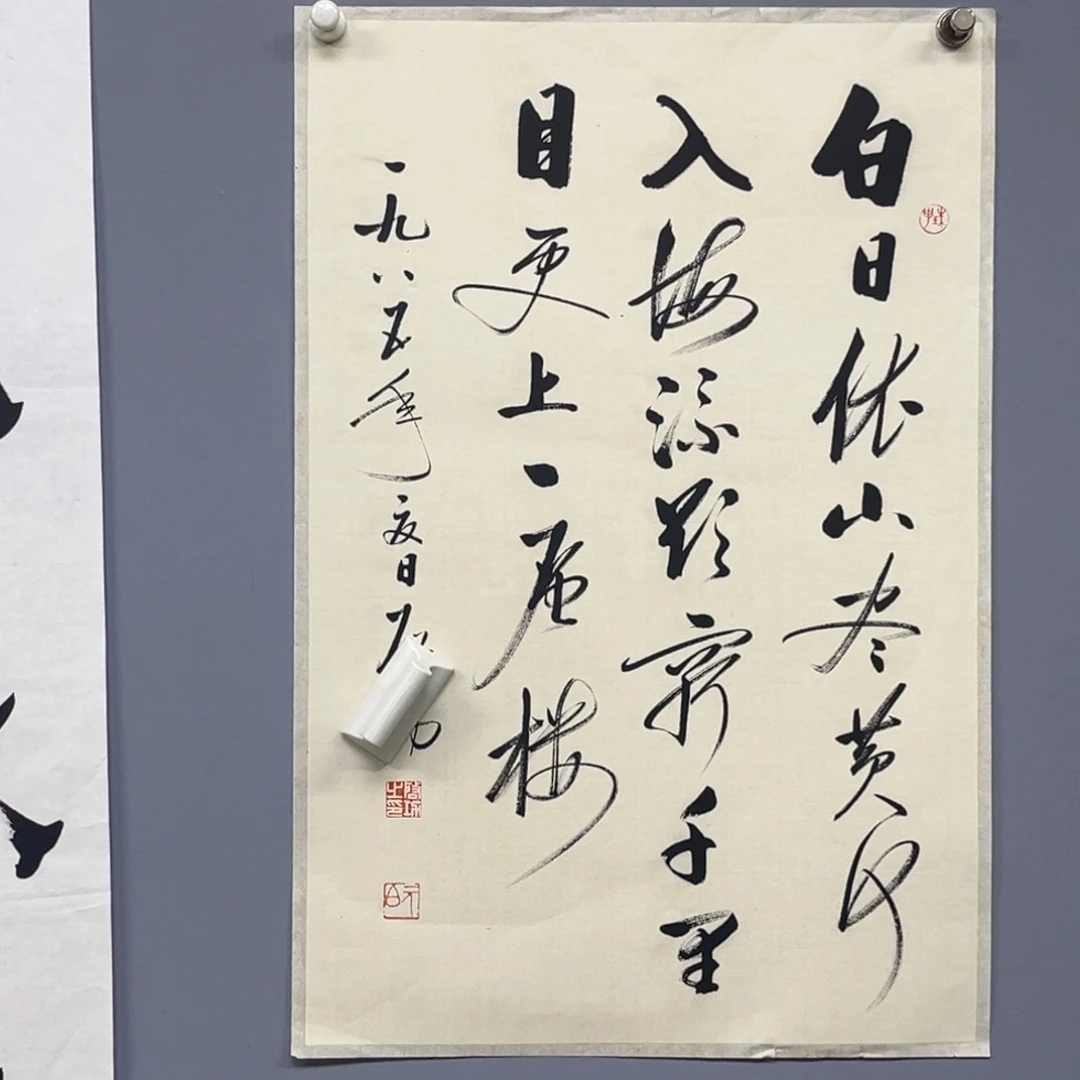 白日依山尽黄河
入海流欲穷千里
目更上一层楼
一九八五年夏日